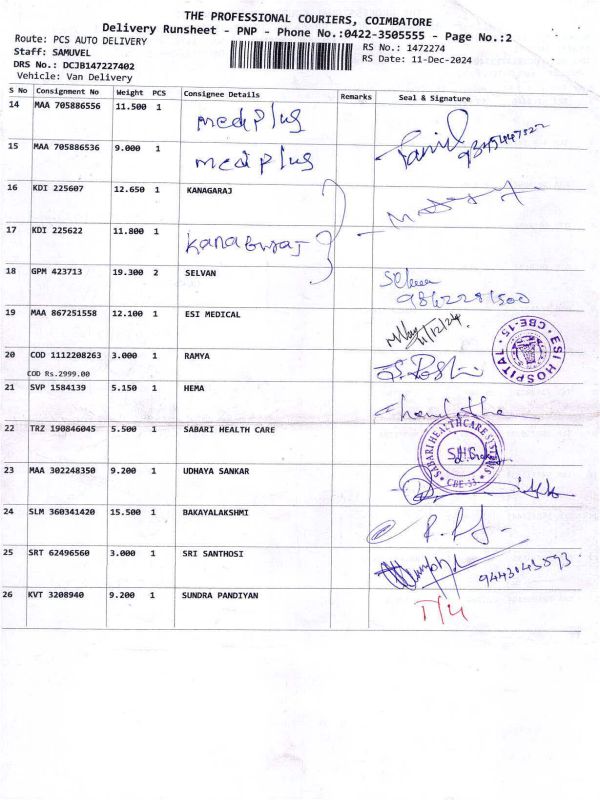 THE PROFESSIONAL COURIERS, COIMBATORE
Delivery Runsheet - PNP - Phone No.:0422-3505555 - Page No.:2
Route: PCS AUTO DELIVERY
RS No.: 1472274
Staff: SAMUVEL
RS Date: 11-Dec-2024
DRS No.: DCJB147227402
Vehicle: Van Delivery
S No Consignment No Weight PCS Consignee Details Remarks Seal & Signature
14 MAA 705886556 11.500 1 medplus
15 MAA 705886536 9.000 1 mediplus
16 KDI 225607 12.650 1 KANAGARAJ
17 KDI 225622 11.800 1
18 GPM 423713 19.300 2 SELVAN
19 MAA 867251558 12.100 1 ESI MEDICAL 11/12/24
ESI HOSPITAL CBE-15
20 COD 1112208263 3.000 1 RAMYA
COD Rs.2999.00
21 SVP 1584139 5.150 1 HEMA
22 TRZ 190846045 5.500 1 SABARI HEALTH CARE
SABARI HEALTHCARE SYSTEMS SHC CBE-33
23 MAA 302248350 9.200 1 UDHAYA SANKAR
24 SLM 360341420 15.500 1 BAKAYALAKSHMI
25 SRT 62496560 3.000 1 SRI SANTHOSI
26 KVT 3208940 9.200 1 SUNDRA PANDIYAN